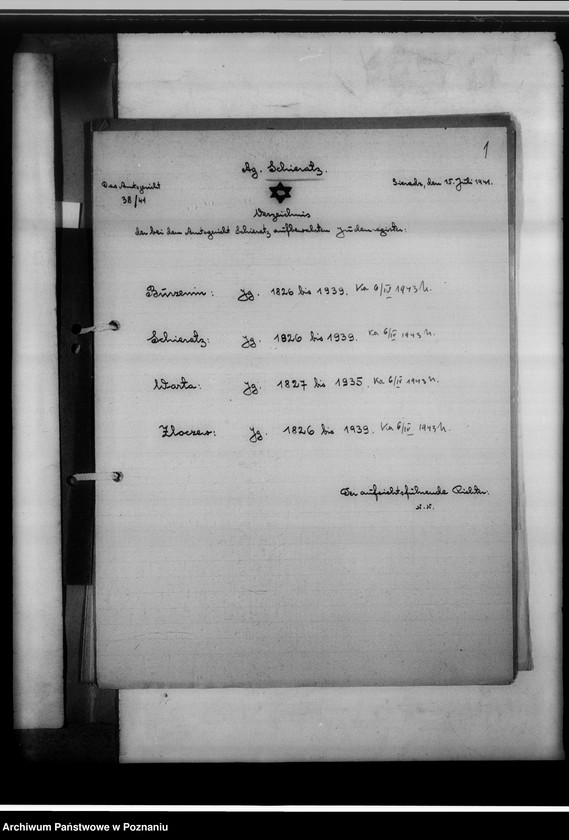 1
Ag. Schieratz.
Das Amtsgericht
38/41
Sieradz, den 15. Juli 1941.
Verzeichnis
der bei dem Amtsgericht Schieratz aufbewahrten Judenregister:
Burzenin: Jg. 1826 bis 1939. Ka 6/IV 1943 N.
Schieratz: Jg. 1826 bis 1939. Ka 6/IV 1943 N.
Warta: Jg. 1827 bis 1935. Ka 6/IV 1943 N.
Zloczew: Jg. 1826 bis 1939. Ka 6/IV 1943 N.
Der aufsichtsführende Richter.
N.N.
Archiwum Państwowe w Poznaniu